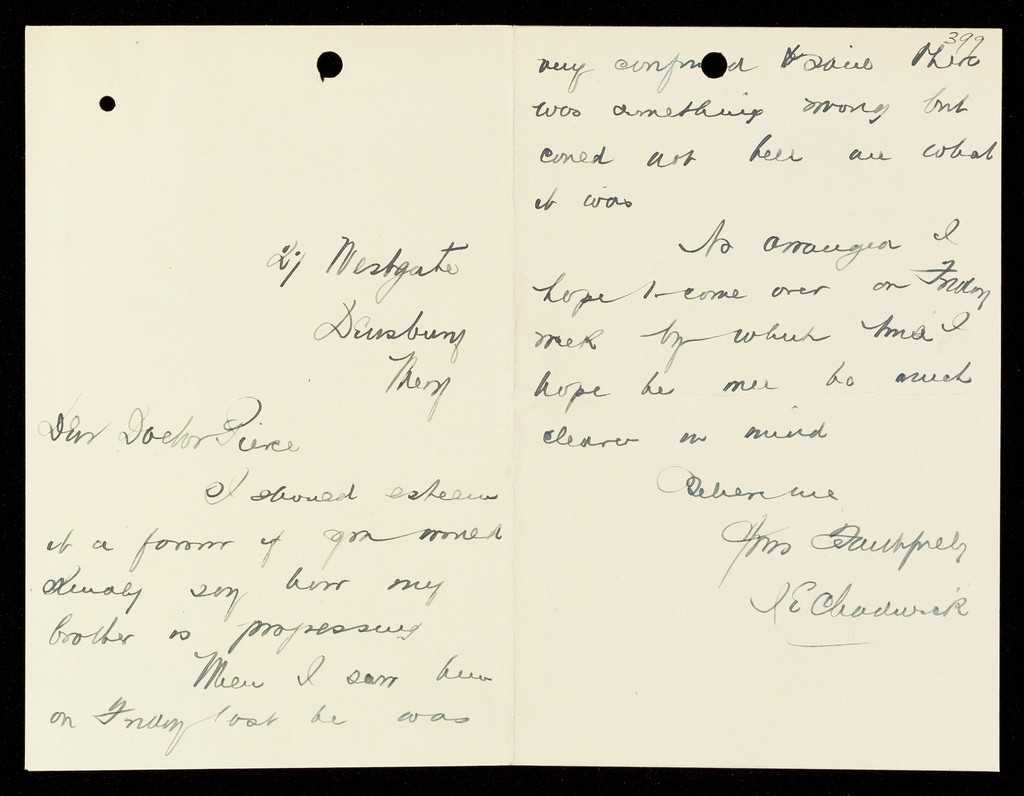 27 Westgate
Dewsbury
Thursy
Dear Doctor Pierce
I should esteem
it a favour if you would
kindly say how my
brother is progressing
When I saw him
on Friday last he was
399
very confused & said there
was something wrong but
could not tell me what
it was
As arranged I
hope to come over on Friday
week by which time I
hope he will be much
clearer in mind
Believe me
Yours Faithfully
J E Chadwick